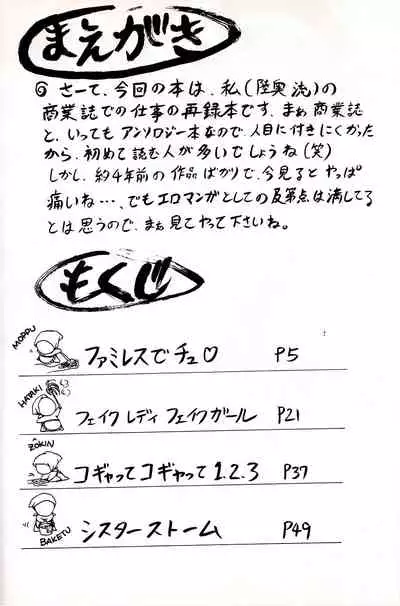 まえがき
◎ さーて、今回の本は、私(陸奥 流)の
商業誌での仕事の再録本です、まぁ商業誌
と、いっても アンソロジー本なので、人目に付きにくかった
から、初めて読む人が多いでしょうね(笑)
しかし、約4年前の作品ばかりで、今見ると やっぱ
痛いね…、でもエロマンガとしての及第点は満してる
とは思うので、まぁ見てやって下さいね。
もくじ
MOPPU ファミレスでチュ♡ P5
HATAKI フェイク レディ フェイクガール P21
ZÔKIN コギャってコギャって 1.2.3 P37
BAKETU シスターストーム P49